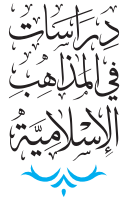 دِرَاسَات
في المَذاهِب
الإِسْلَامِيَّة